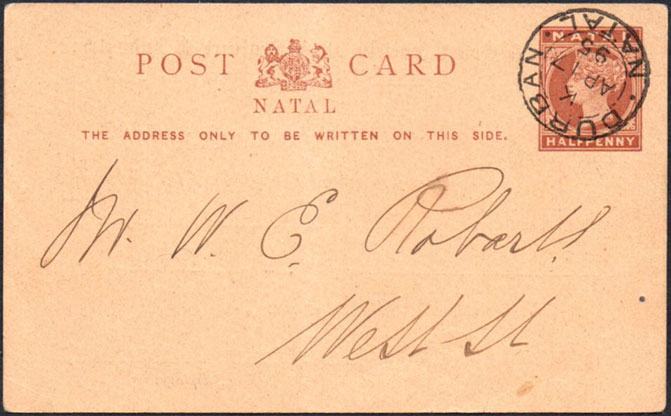 POST CARD
NATAL
THE ADDRESS ONLY TO BE WRITTEN ON THIS SIDE.
NATAL
HALFPENNY
DURBAN · NATAL ·
AP 17
Mr. W. E. Roberts
West St